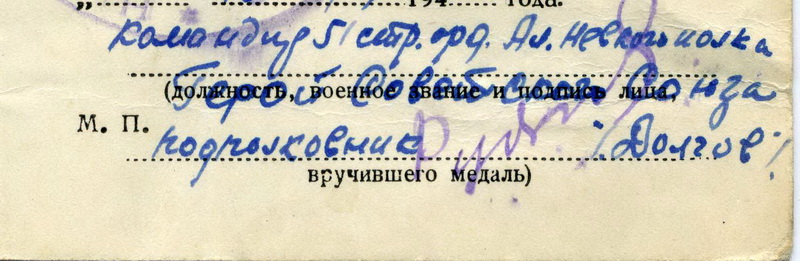 „ 194 года.
Командир 51 стр. орд. Ал. Невского полка
Герой Советского Союза
(должность, военное звание и подпись лица,
М. П. подполковник /Долгов/
вручившего медаль)